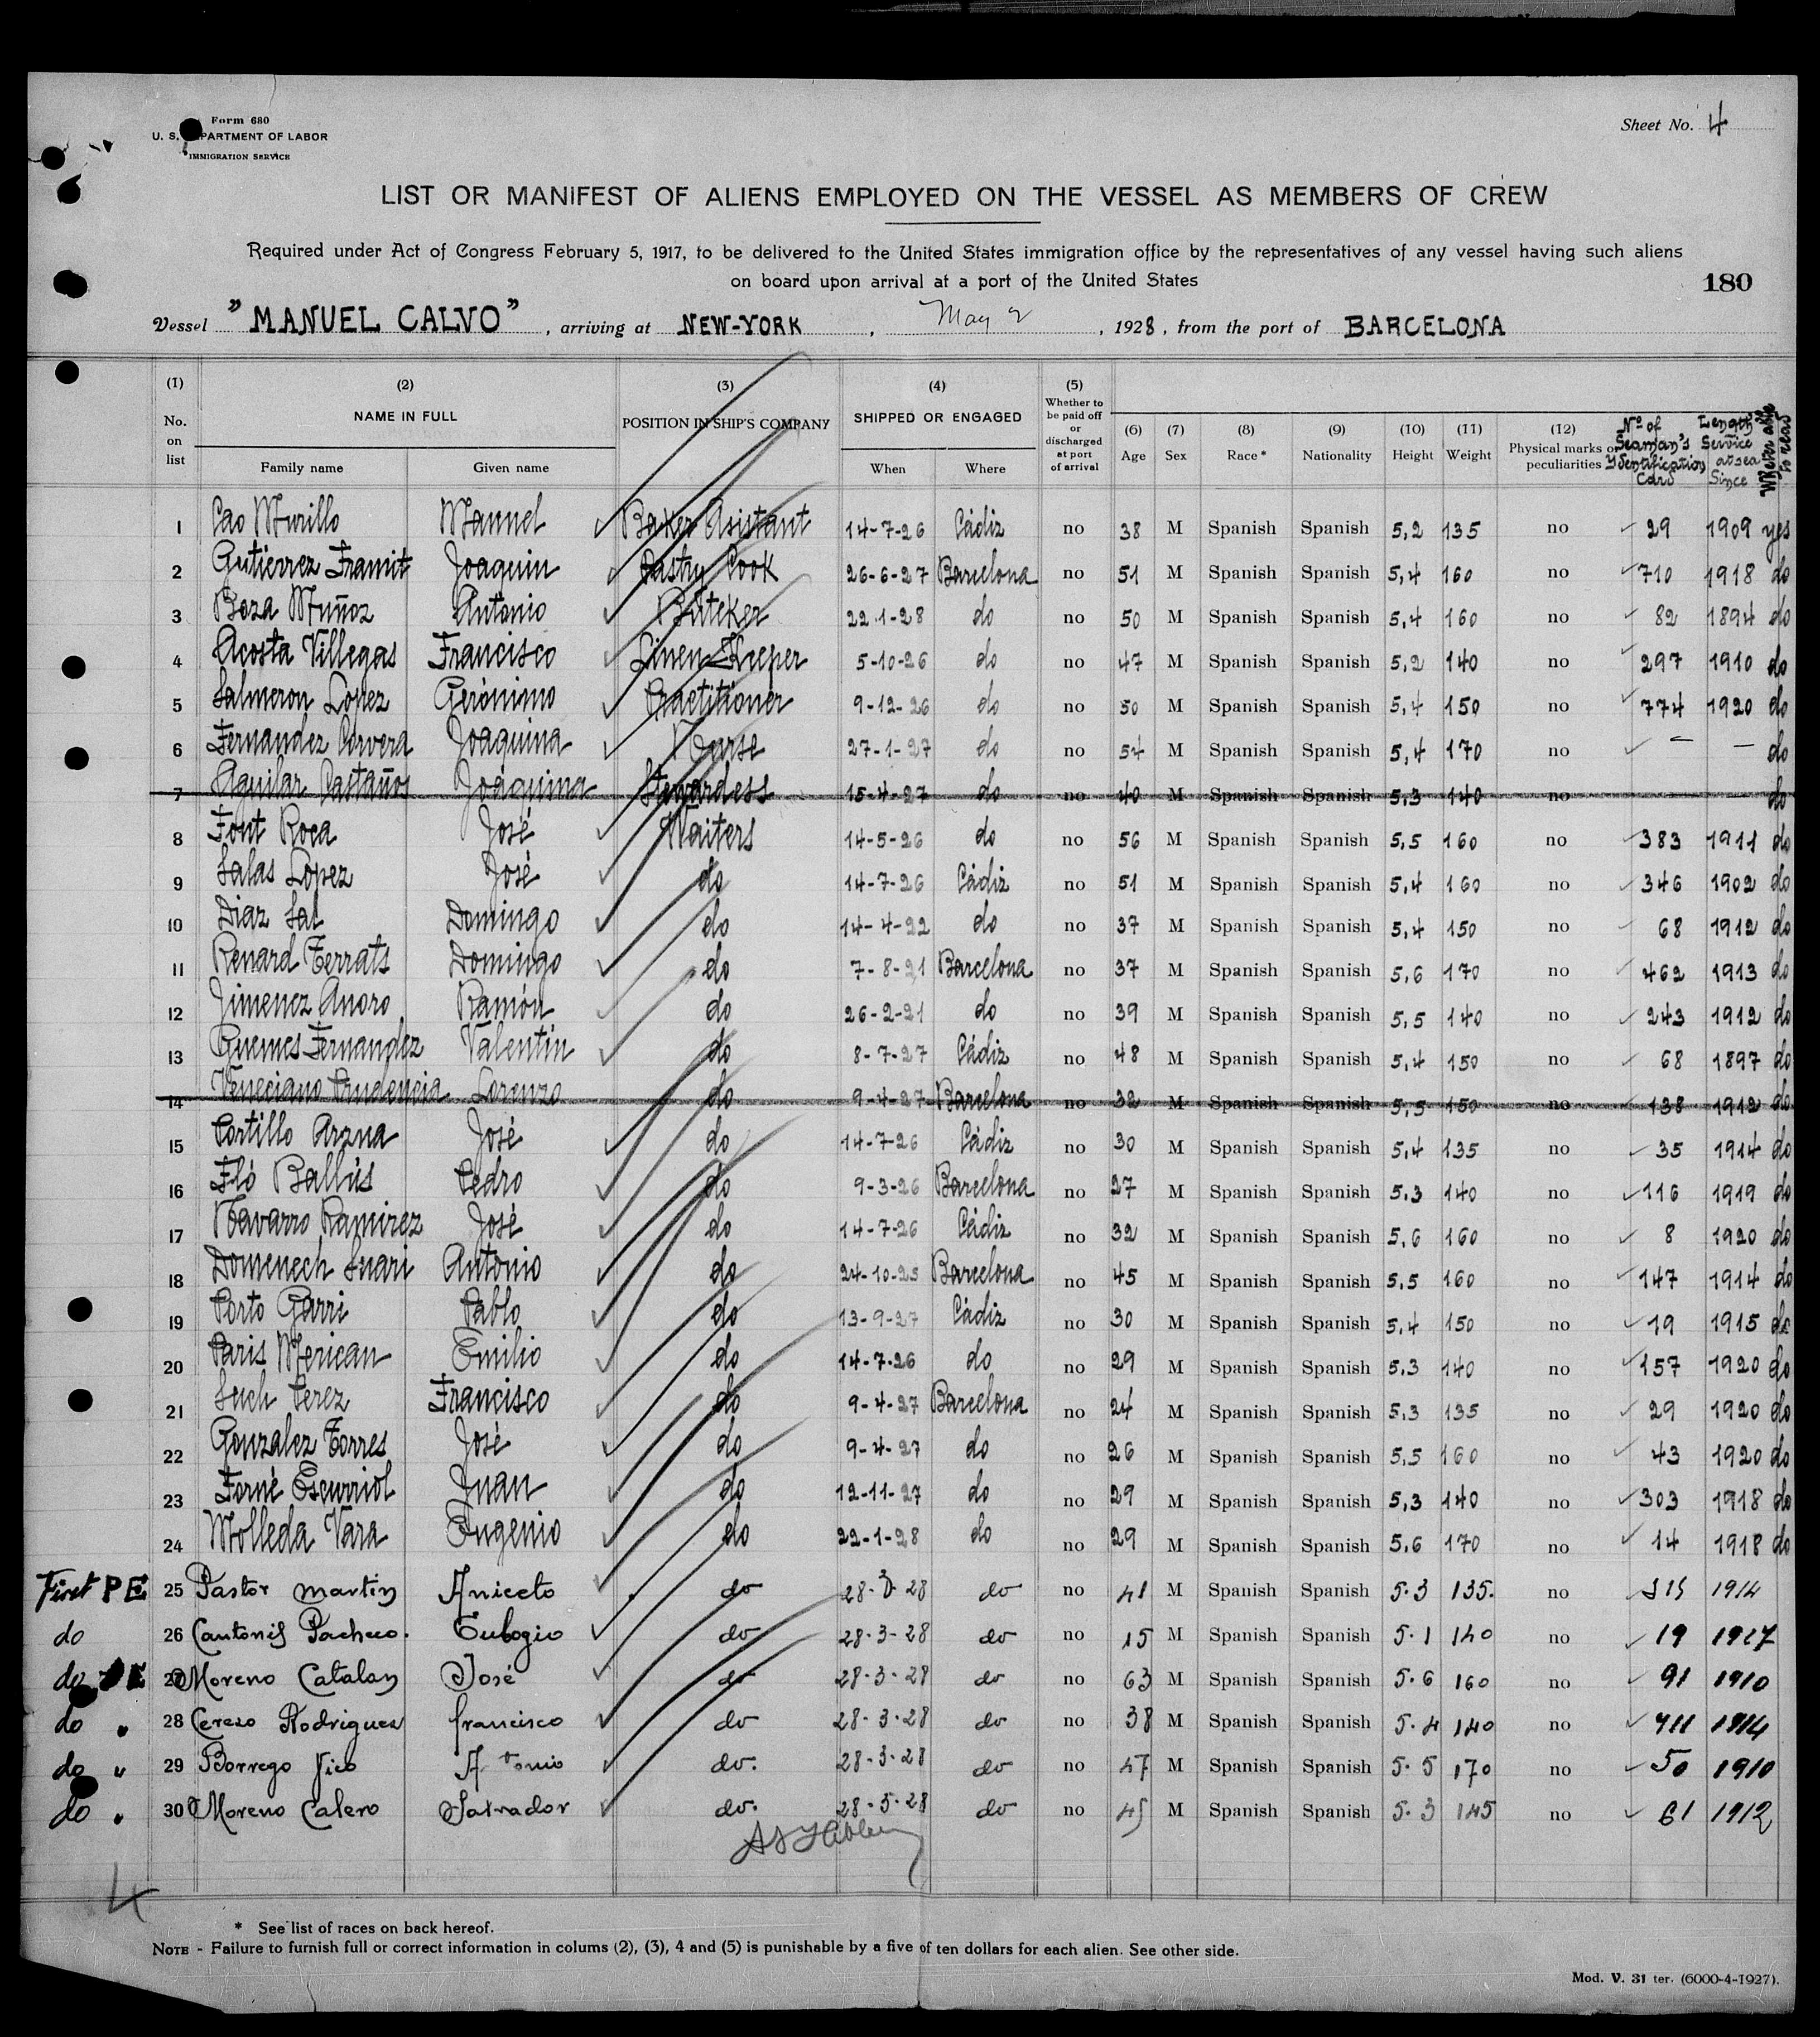 Form 680
U. S. DEPARTMENT OF LABOR
IMMIGRATION SERVICE
Sheet No. 4
LIST OR MANIFEST OF ALIENS EMPLOYED ON THE VESSEL AS MEMBERS OF CREW
Required under Act of Congress February 5, 1917, to be delivered to the United States immigration office by the representatives of any vessel having such aliens
on board upon arrival at a port of the United States
180
Vessel "MANUEL CALVO", arriving at NEW-YORK, May 2, 1928, from the port of BARCELONA
(1) No. on list (2) NAME IN FULL Family name Given name (3) POSITION IN SHIP'S COMPANY (4) SHIPPED OR ENGAGED When Where (5) Whether to be paid off or discharged at port of arrival (6) Age (7) Sex (8) Race* (9) Nationality (10) Height (11) Weight (12) Physical marks or peculiarities Nº of Seaman's Ydentification Card Length Service at sea Since Wheter able to read
1 Cao Murillo Manuel Baker Asistant 14-7-26 Cádiz no 38 M Spanish Spanish 5,2 135 no 29 1909 yes
2 Gutierrez Framit Joaquin Pastry Cook 26-6-27 Barcelona no 51 M Spanish Spanish 5,4 160 no 710 1918 do
3 Boza Muñoz Antonio Butcker 22-1-28 do no 50 M Spanish Spanish 5,4 160 no 82 1894 do
4 Acosta Villegas Francisco Linen Keeper 5-10-26 do no 47 M Spanish Spanish 5,2 140 no 297 1910 do
5 Salmeron Lopez Gerónimo Practitioner 9-12-26 do no 50 M Spanish Spanish 5,4 150 no 774 1920 do
6 Fernandez Corvera Joaquina Nurse 27-1-27 do no 54 M Spanish Spanish 5,4 170 no - - do
7 Aguilar Castaños Joaquina Stewardess 15-4-27 do no 40 M Spanish Spanish 5,3 140 no do
8 Font Roca José Waiters 14-5-26 do no 56 M Spanish Spanish 5,5 160 no 383 1911 do
9 Salas Lopez José do 14-7-26 Cádiz no 51 M Spanish Spanish 5,4 160 no 346 1902 do
10 Diaz Sal Domingo do 14-4-22 do no 37 M Spanish Spanish 5,4 150 no 68 1912 do
11 Renard Terrats Domingo do 7-8-21 Barcelona no 37 M Spanish Spanish 5,6 170 no 462 1913 do
12 Jimenez Anoro Ramón do 26-2-21 do no 39 M Spanish Spanish 5,5 140 no 243 1912 do
13 Guemes Fernandez Valentin do 8-7-27 Cádiz no 48 M Spanish Spanish 5,4 150 no 68 1897 do
14 Veneciano Prudencia Lorenzo do 9-4-27 Barcelona no 32 M Spanish Spanish 5,5 150 no 138 1912 do
15 Portillo Arzna José do 14-7-26 Cádiz no 30 M Spanish Spanish 5,4 135 no 35 1914 do
16 Fló Ballús Pedro do 9-3-26 Barcelona no 27 M Spanish Spanish 5,3 140 no 116 1919 do
17 Navarro Ramirez José do 14-7-26 Cádiz no 32 M Spanish Spanish 5,6 160 no 8 1920 do
18 Domenech Suari Antonio do 24-10-25 Barcelona no 45 M Spanish Spanish 5,5 160 no 147 1914 do
19 Porto Garri Pablo do 13-9-27 Cádiz no 30 M Spanish Spanish 5,4 150 no 19 1915 do
20 Paris Merican Emilio do 14-7-26 do no 29 M Spanish Spanish 5,3 140 no 157 1920 do
21 Such Perez Francisco do 9-4-27 Barcelona no 24 M Spanish Spanish 5,3 135 no 29 1920 do
22 Gonzalez Torres José do 9-4-27 do no 26 M Spanish Spanish 5,5 160 no 43 1920 do
23 Forné Escurriol Juan do 12-11-27 do no 29 M Spanish Spanish 5,3 140 no 303 1918 do
24 Molleda Vara Eugenio do 22-1-28 do no 29 M Spanish Spanish 5,6 170 no 14 1918 do
First PE 25 Pastor Martin Aniceto do 28-3-28 do no 41 M Spanish Spanish 5.3 135. no 1914
do 26 Pacheco. Eulogio do 28-3-28 do no 15 M Spanish Spanish 5.1 140 no 19 1927
do 27 Moreno Catalan José do 28-3-28 do no 63 M Spanish Spanish 5.6 160 no 91 1910
do " 28 Cerezo Rodrigues francisco do 28-3-28 do no 38 M Spanish Spanish 5.4 140 no 1914
do " 29 Borrego Vico do. 28-3-28 do no 47 M Spanish Spanish 5.5 170 no 50 1910
do " 30 Moreno Calero Salvador do. 28-5-28 do no 45 M Spanish Spanish 5.3 145 no 61 1912
4
* See list of races on back hereof.
NOTE - Failure to furnish full or correct information in colums (2), (3), 4 and (5) is punishable by a five of ten dollars for each alien. See other side.
Mod. V. 31 ter. (6000-4-1927).